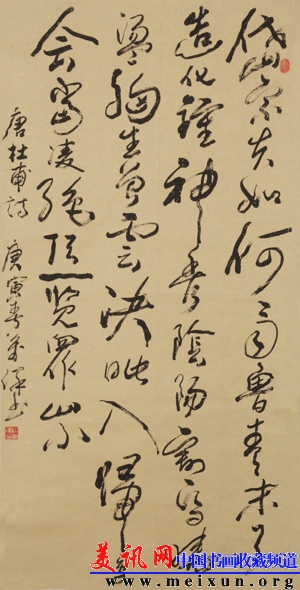 岱宗夫如何齊魯青未了
造化鍾神秀陰陽割昏曉
盪胸生曾雲決眥入歸鳥
会當凌絕頂一覽眾山小
唐杜甫詩 庚寅春 书
美讯网 中国书画收藏频道
www.meixun.org